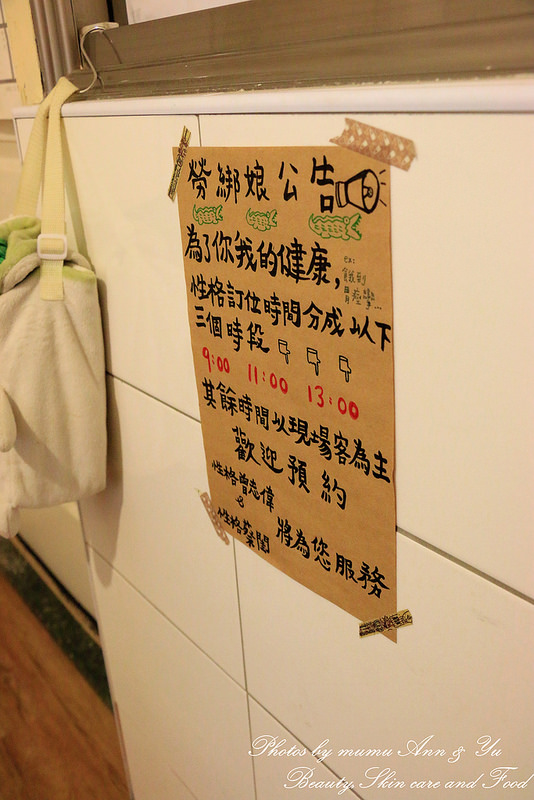 勞綁娘公告
為了你我的健康,
ex:
性格訂位時間分成以下
三個時段
9:00 11:00 13:00
其餘時間以現場客為主
歡迎預約
性格曾志偉
&
性格蔡閨
將為您服務
Photos by mumu Ann & Yu
Beauty, Skin care and Food